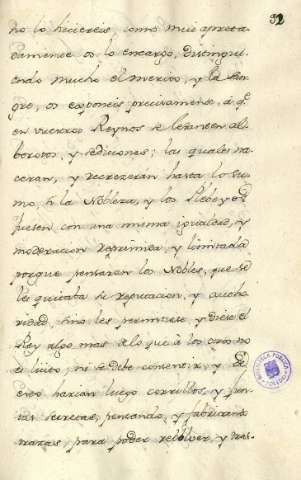 92
no lo hiciereis, como mui apreta
damente os lo encargo, distingui
endo mucho el merito, y la San
gre, os exponeis precisamente, á q.e
en vuestros Reynos se levanten al
borotos, y sediciones; las quales na
ceran, y recrezeran hasta lo su
mo, si la Nobleza, y los Plebeyos
fuesen con una misma igualdad, y
moderacion reprimida, y limitada
porque pensaran los Nobles, que se
les quitaba su reputacion, y autho
ridad, sino les permitiese, y diese el
Rey algo mas de lo que á los otros no
es licito, ni se debe consentir, y
harian luego corrillos, y jun
tas secretas, pensando, y fabricando
trazas, para poder rebolver, y tras-
BIBLIOTECA PUBLICA
TOLEDO